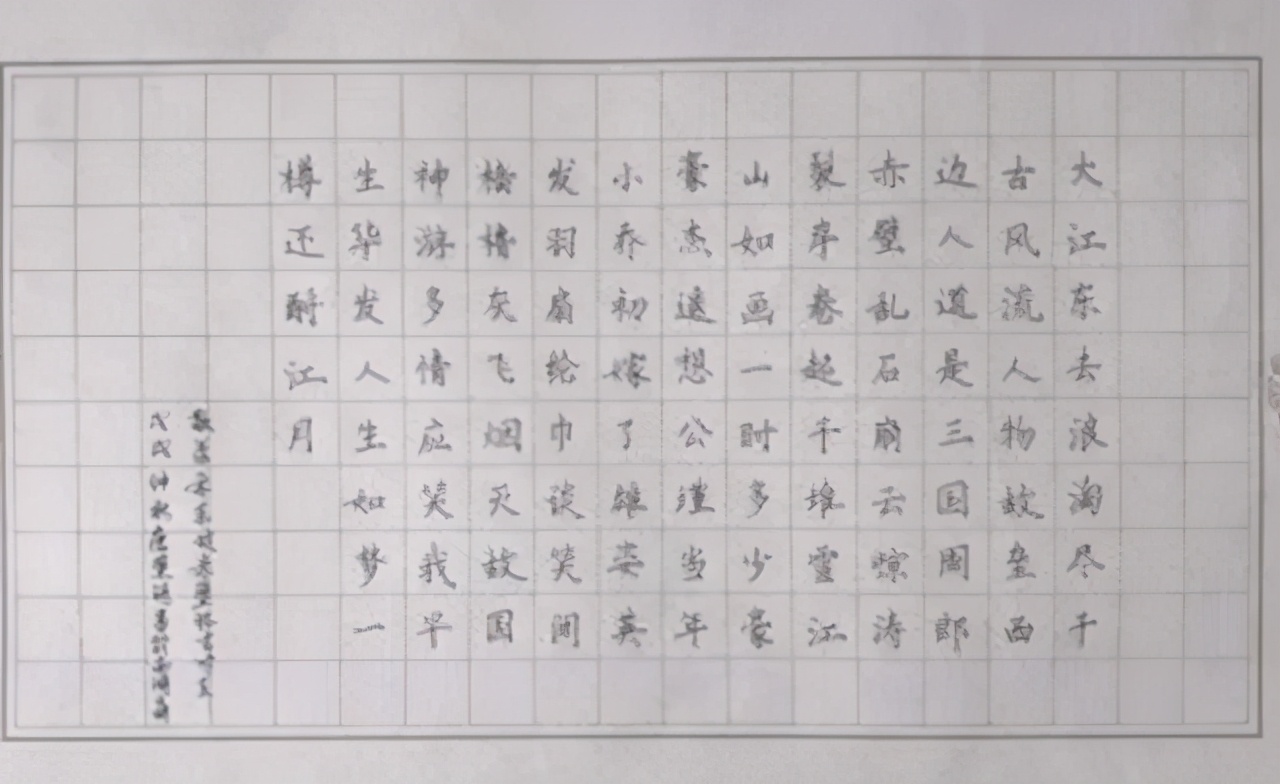 大江东去浪淘尽千
古风流人物故垒西
边人道是三国周郎
赤壁乱石崩云惊涛
裂岸卷起千堆雪江
山如画一时多少豪
豪杰遥想公瑾当年
小乔初嫁了雄姿英
发羽扇纶巾谈笑间
樯橹灰飞烟灭故国
神游多情应笑我早
生华发人生如梦一
樽还酹江月
赤壁怀古
戊戌仲秋